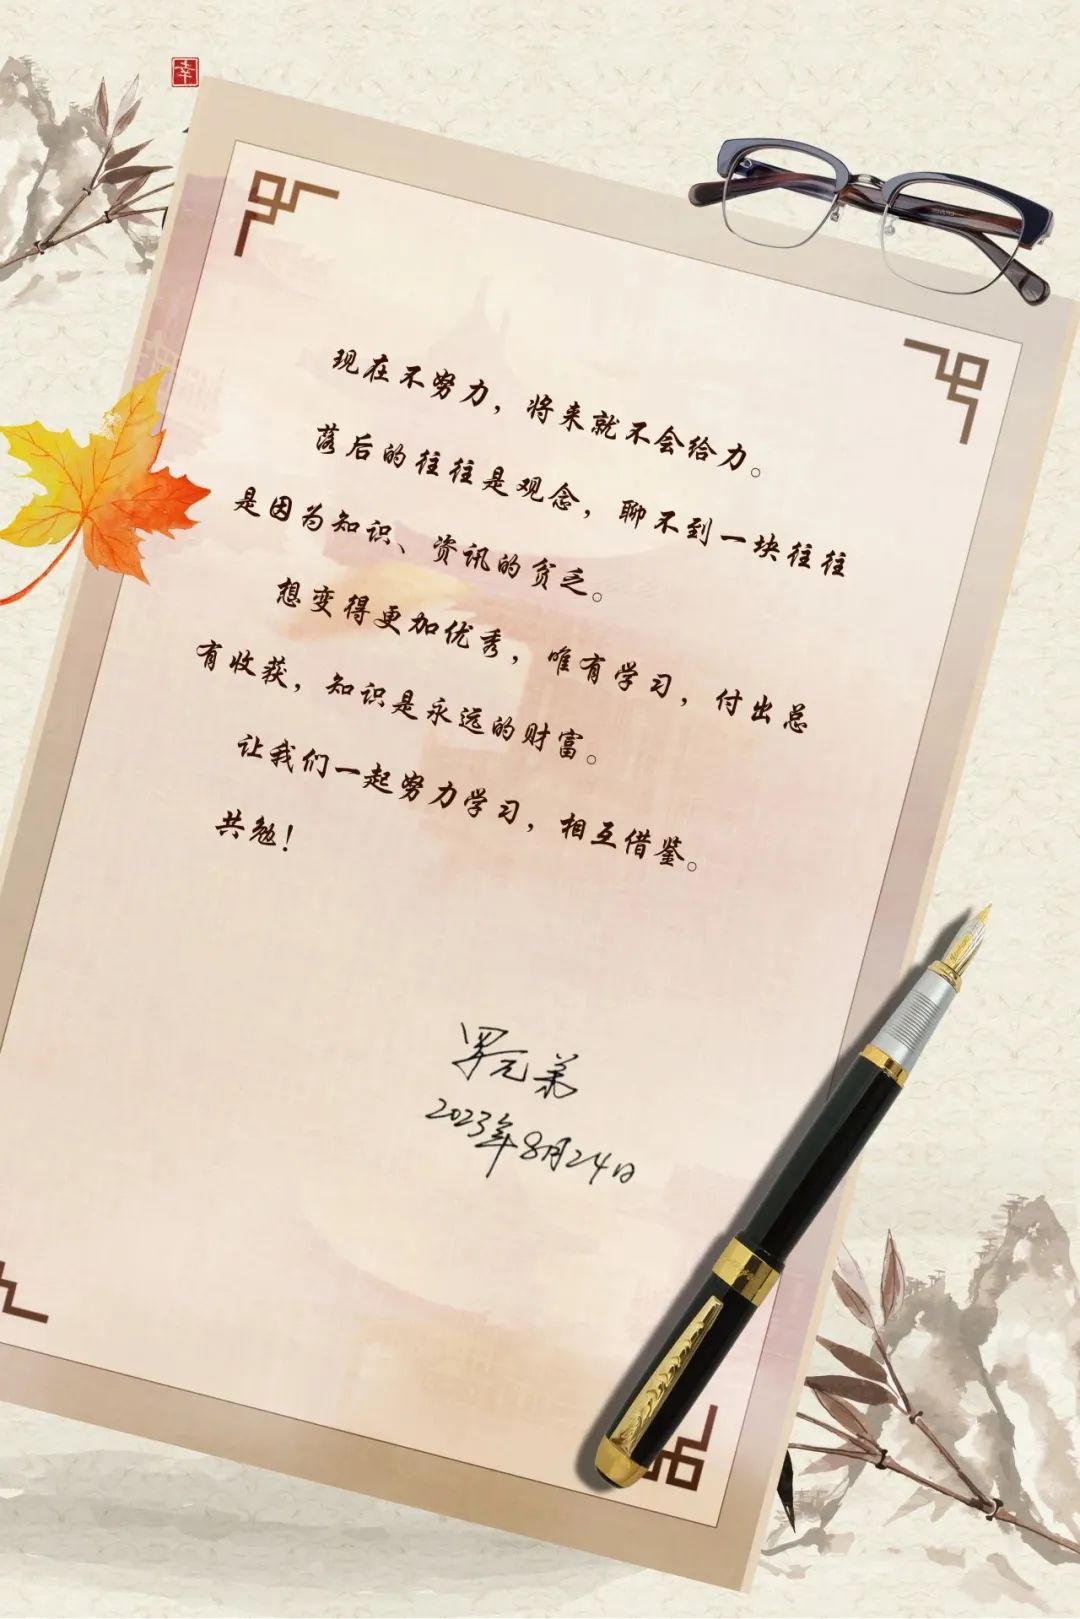 幸
现在不努力，将来就不会给力。
落后的往往是观念，聊不到一块往往
是因为知识、资讯的贫乏。
想变得更加优秀，唯有学习，付出总
有收获，知识是永远的财富。
让我们一起努力学习，相互借鉴。
共勉！
2023年8月24日